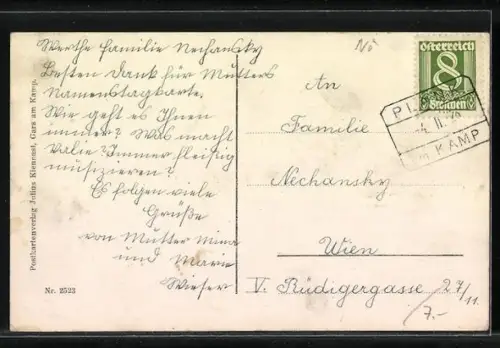 Werthe Familie Nechansky
Besten Dank für Mutters
Namenstagkarte.
Wie geht es Ihnen
immer? Was macht
Valie? Immer fleißig
musizieren?
Es folgen viele
Grüße
von Mutter Mina
und Marie
Wieser
Nö
An
Familie
Nechansky
Wien
V. Rüdigergasse 27/11.
7.-
Österreich
8
Groschen
KAMP
Postkartenverlag Julius Kienast, Gars am Kamp.
Nr. 2522